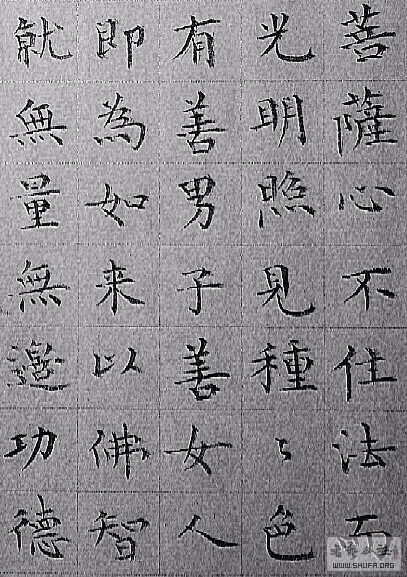 菩薩心不住法而
光明照見種〻色
有善男子善女人
即為如来以佛智
就無量無邊功德
WWW.SHUFA.ORG